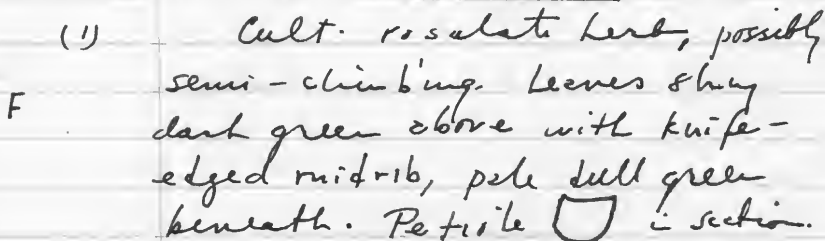 (1) Cult. rosulate herb, possibly
semi-climbing. Leaves shiny
F dark green above with knife-
edged midrib, pale dull green
beneath. Petiole in section.